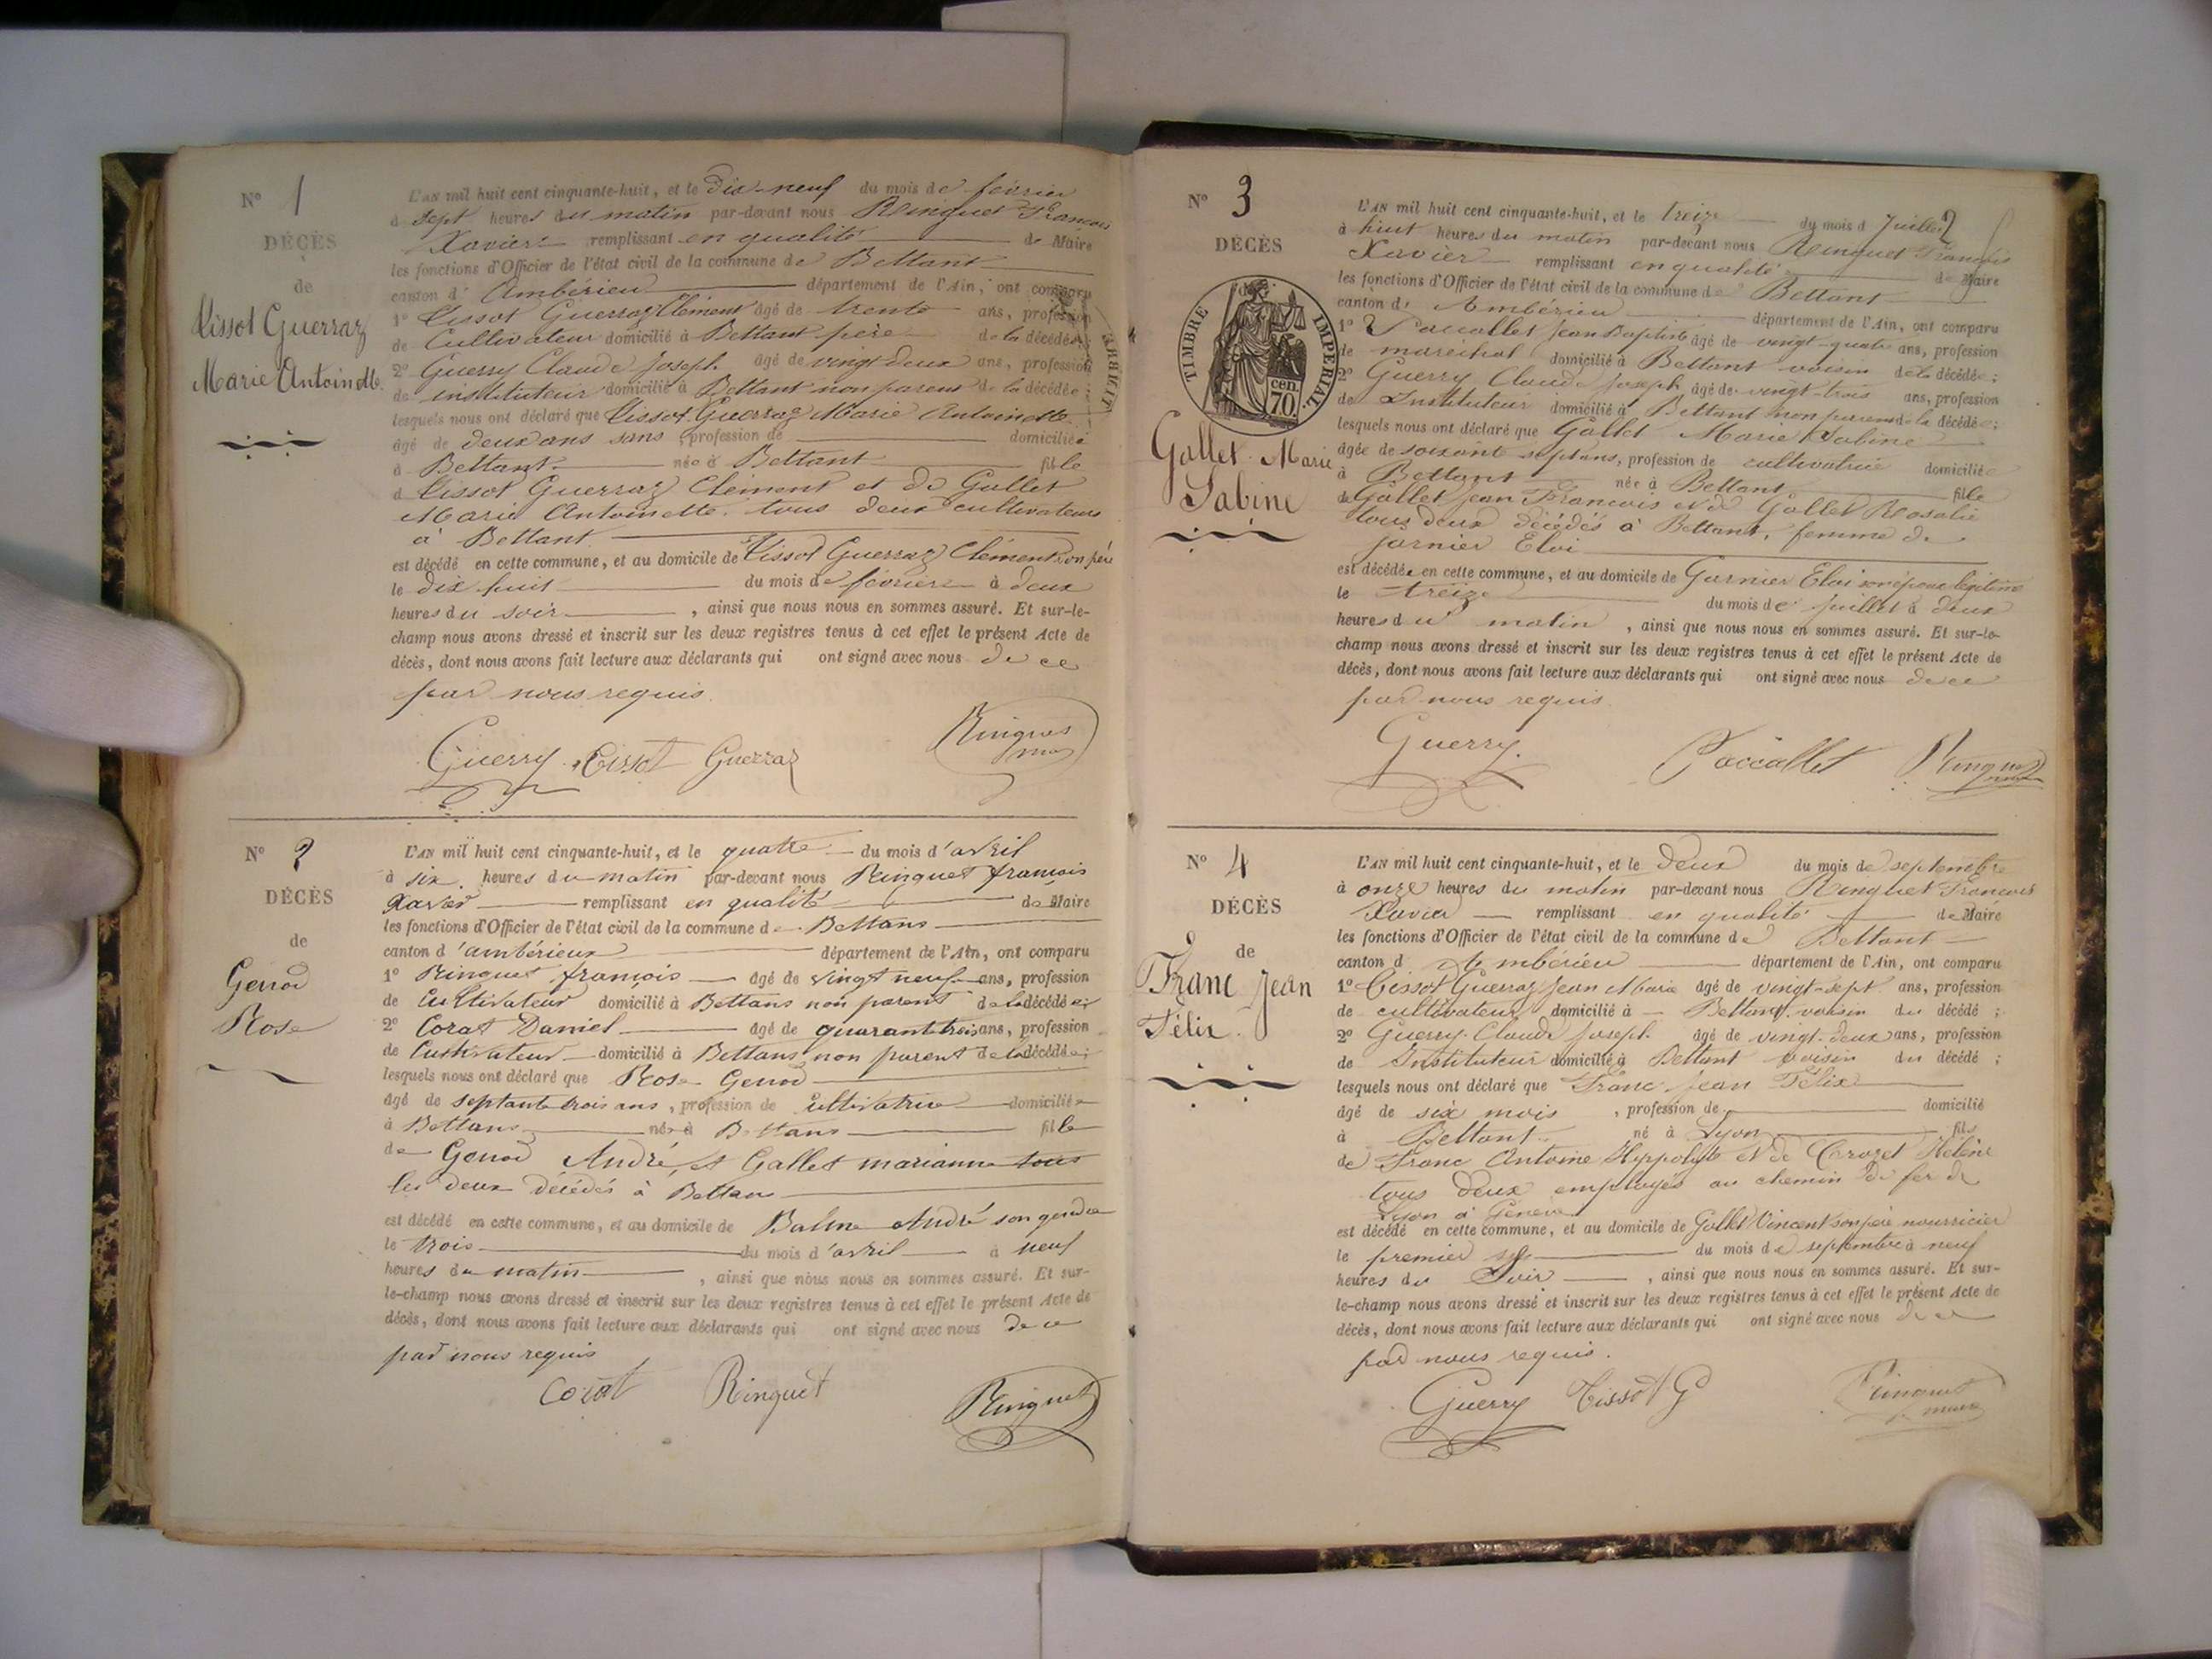 N° 1
DÉCÈS
de
Tissot Guerraz
Marie Antoinette
L'AN mil huit cent cinquante-huit, et le dix-neuf du mois de février
à sept heures du matin par-devant nous Ringuet François
Xavier remplissant en qualité de Maire
les fonctions d'Officier de l'état civil de la commune de Bettant
canton d' Ambérieu département de l'Ain, ont comparu
1° Tissot Guerraz Clément âgé de trente ans, profession
de Cultivateur domicilié à Bettant père de la décédée
2° Guerry Claude Joseph âgé de vingt deux ans, profession
de instituteur domicilié à Bettant non parent de la décédée ;
lesquels nous ont déclaré que Tissot Guerraz Marie Antoinette
âgé de deux ans sans profession de domiciliée
à Bettant née à Bettant fille
d Tissot Guerraz Clément et de Gallet
Marie Antoinette tous deux cultivateurs
à Bettant
est décédé en cette commune, et au domicile de Tissot Guerraz Clément son père
le dix huit du mois de février à deux
heures du soir , ainsi que nous nous en sommes assuré. Et sur-le-
champ nous avons dressé et inscrit sur les deux registres tenus à cet effet le présent Acte de
décès, dont nous avons fait lecture aux déclarants qui ont signé avec nous de ce
par nous requis.
Guerry Tissot Guerraz Ringuet
N° 2
DÉCÈS
de
Genod
Rose
L'AN mil huit cent cinquante-huit, et le quatre du mois d'avril
à six heures du matin par-devant nous Ringuet françois
Xavier remplissant en qualité de Maire
les fonctions d'Officier de l'état civil de la commune de Bettans
canton d'ambérieux département de l'Ain, ont comparu
1° Ringuet françois âgé de vingt neuf ans, profession
de Cultivateur domicilié à Bettans non parent de la décédée ;
2° Corat Daniel âgé de quarante trois ans, profession
de Cultivateur domicilié à Bettans non parent de la décédée ;
lesquels nous ont déclaré que Rose Genod
âgé de septante trois ans, profession de cultivatrice domiciliée
à Bettans née à Bettans fille
de Genod André et Gallet marianne tous
les deux décédés à Bettans
est décédé en cette commune, et au domicile de Balme André son gendre
le trois du mois d'avril à neuf
heures du matin , ainsi que nous nous en sommes assuré. Et sur-
le-champ nous avons dressé et inscrit sur les deux registres tenus à cet effet le présent Acte de
décès, dont nous avons fait lecture aux déclarants qui ont signé avec nous de ce
par nous requis
Corat Ringuet Ringuet
N° 3
DÉCÈS
de
TIMBRE IMPÉRIAL
70 cen.
Gallet Marie
Sabine
L'AN mil huit cent cinquante-huit, et le treize du mois d Juillet
à huit heures du matin par-devant nous Ringuet François
Xavier remplissant en qualité de Maire
les fonctions d'Officier de l'état civil de la commune de Bettant
canton d' Ambérieu département de l'Ain, ont comparu
1° Paccallet Jean Baptiste âgé de vingt-quatre ans, profession
de maréchal domicilié à Bettant voisin de la décédée ;
2° Guerry Claude Joseph âgé de vingt-trois ans, profession
de Instituteur domicilié à Bettant non parent de la décédée ;
lesquels nous ont déclaré que Gallet Marie Sabine
âgée de soixante sept ans, profession de cultivatrice domiciliée
à Bettant née à Bettant fille
de Gallet Jean François et de Gallet Rosalie
tous deux décédés à Bettant, femme de
jarnier Eloi
est décédée en cette commune, et au domicile de Garnier Eloi son époux légitime
le treize du mois de juillet à deux
heures du matin , ainsi que nous nous en sommes assuré. Et sur-le-
champ nous avons dressé et inscrit sur les deux registres tenus à cet effet le présent Acte de
décès, dont nous avons fait lecture aux déclarants qui ont signé avec nous de ce
par nous requis
Guerry Paccallet Ringuet
N° 4
DÉCÈS
de
Franc Jean
Félix
L'AN mil huit cent cinquante-huit, et le deux du mois de septembre
à onze heures du matin par-devant nous Ringuet François
Xavier remplissant en qualité de Maire
les fonctions d'Officier de l'état civil de la commune de Bettant
canton d Ambérieu département de l'Ain, ont comparu
1° Tissot Guerraz Jean Marie âgé de vingt-sept ans, profession
de cultivateur domicilié à Bettant voisin du décédé ;
2° Guerry Claude Joseph âgé de vingt-deux ans, profession
de Instituteur domicilié à Bettant voisin du décédé ;
lesquels nous ont déclaré que Franc Jean Félix
âgé de six mois , profession de domicilié
à Bettant né à Lyon fils
de Franc Antoine Hyppolyte et de Crozet Hélène
tous deux employés au chemin de fer de
Lyon à Genève
est décédé en cette commune, et au domicile de Gallet Vincent son père nourricier
le premier du mois de septembre à neuf
heures du Soir , ainsi que nous nous en sommes assuré. Et sur-
le-champ nous avons dressé et inscrit sur les deux registres tenus à cet effet le présent Acte de
décès, dont nous avons fait lecture aux déclarants qui ont signé avec nous de ce
par nous requis.
Guerry Tissot G Ringuet
maire